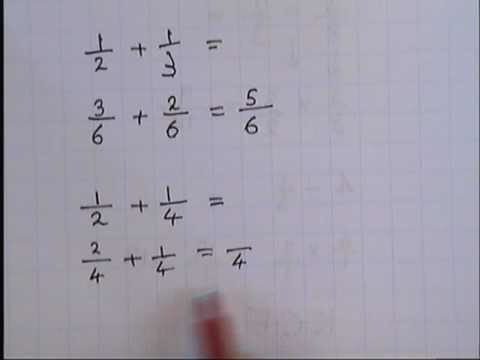 1/2 + 1/3 =
3/6 + 2/6 = 5/6
1/2 + 1/4 =
2/4 + 1/4 = /4